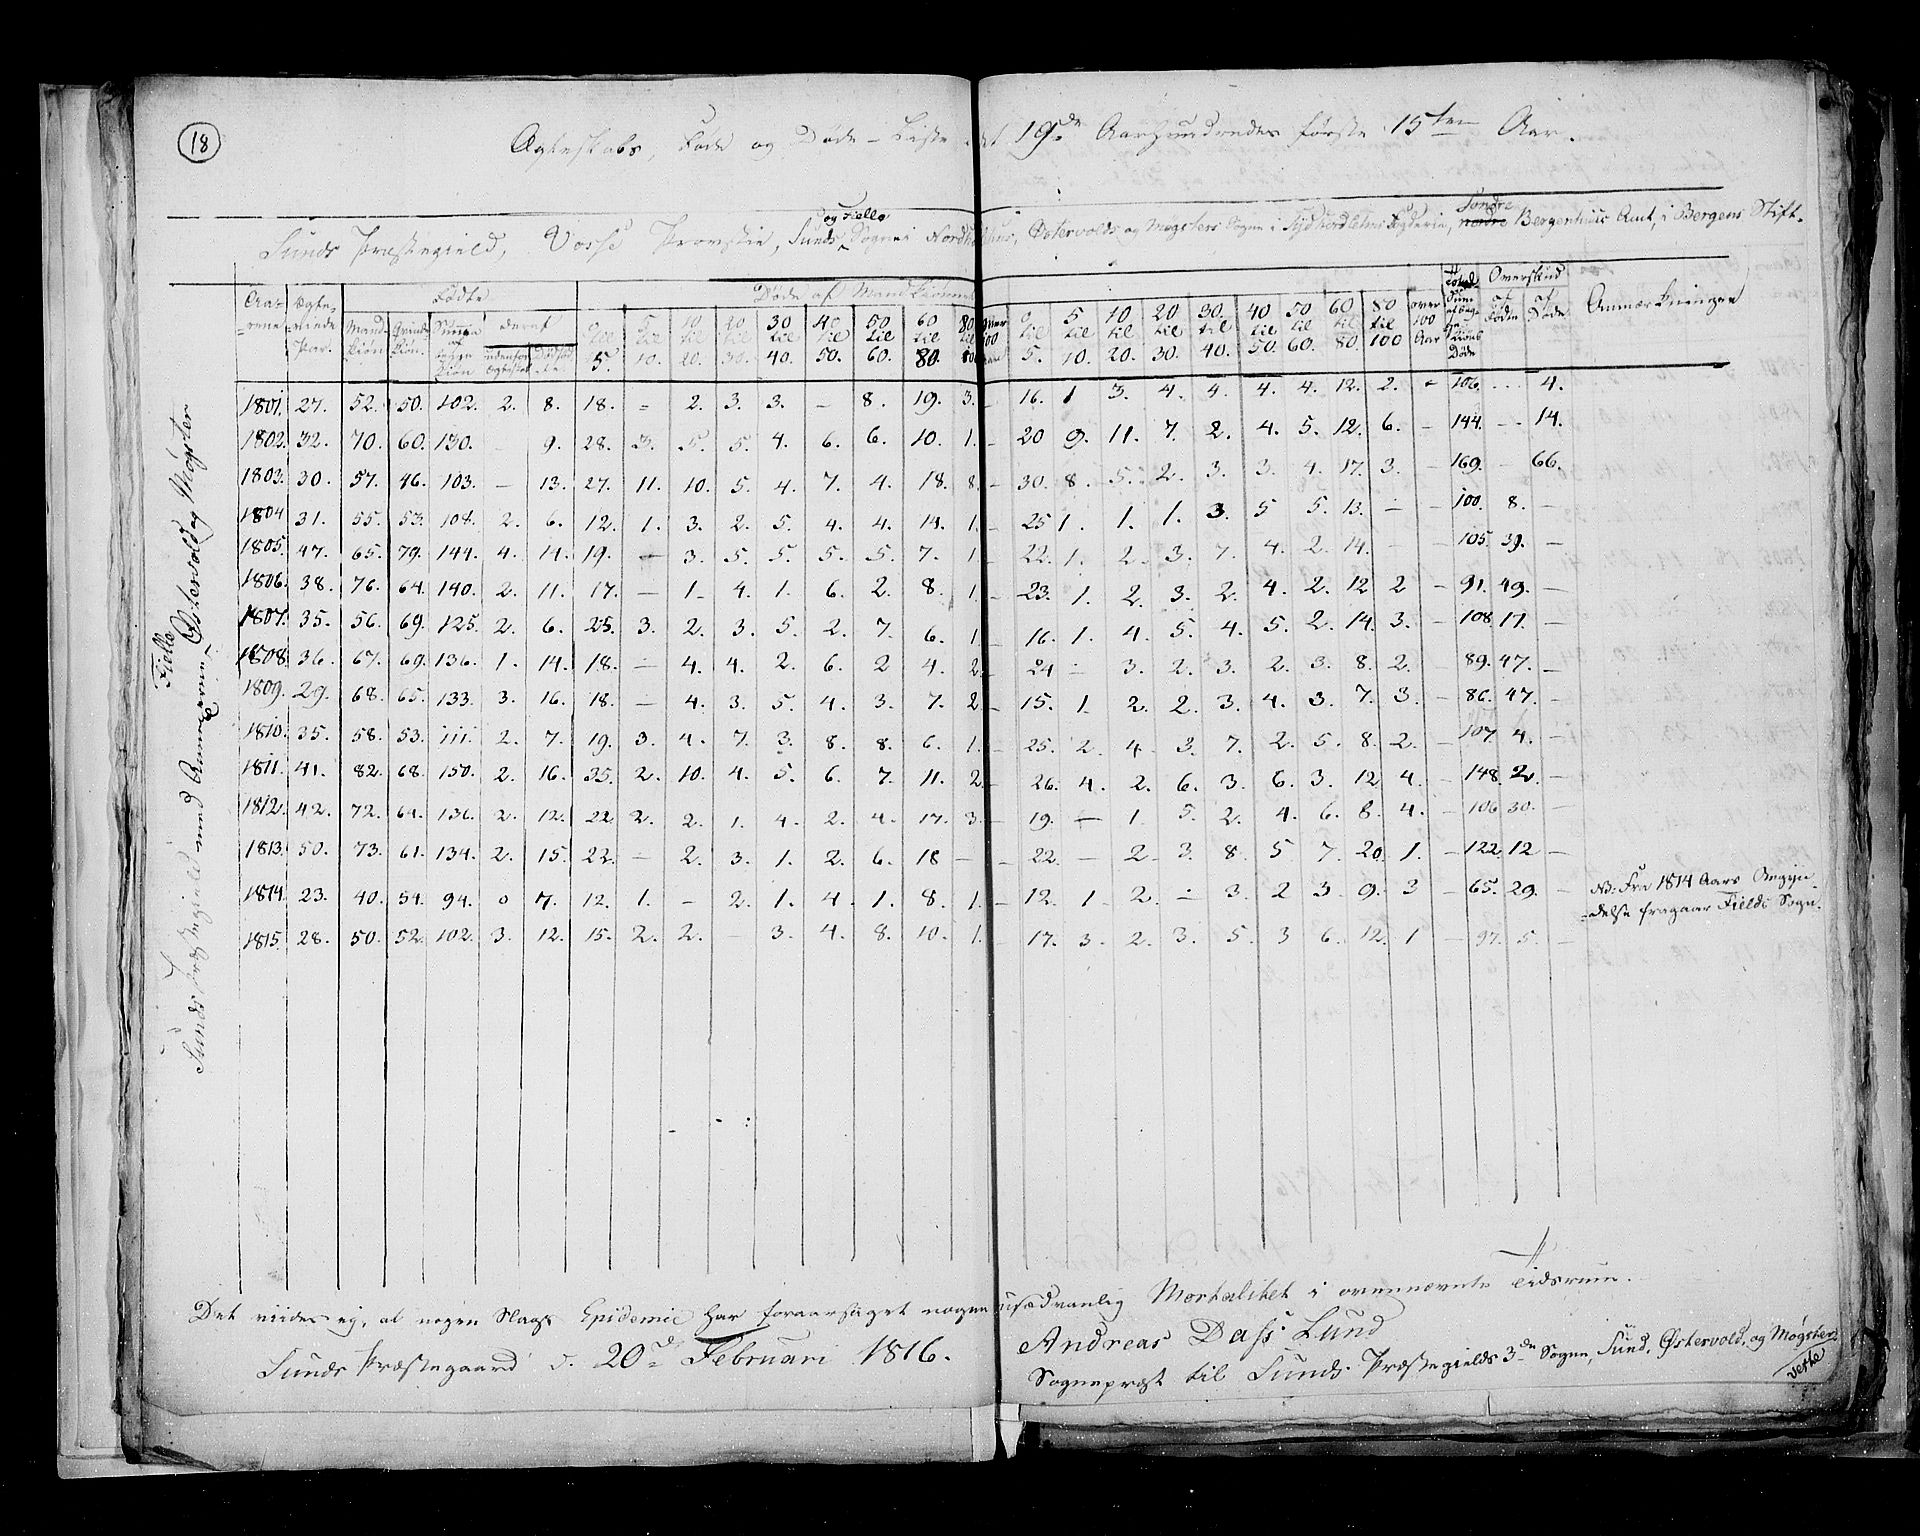 18
Ægteskabs, Føde og Døde-Liste det 19de Aarhundredes første 15ten Aar.
og Fielle Søndre
Sunds Præstegield, Vosse Provstie, Sunds Sogne i Nordhordlehns, Østervolds og Møgsters Sogne i Sydhordlehns Fogderie, nordre Bergenhuus Amt, i Bergens Stift.
Fødte Døde af Mandkiønnet Overskud
Aarene Ægteviede Par. Mandkiøn Qvindekiøn. Summa af begge kiøn deraf udenfor Ægteskab Dødfødde 0 til 5. 5 til 10. 10 til 20. 20 til 30. 30 til 40. 40 til 50. 50 til 60. 60 til 80. 80 til 100 over 100 Aar 0 til 5. 5 til 10. 10 til 20. 20 til 30. 30. til 40. 40 til 50. 50 til 60. 60 til 80. 80 til 100 over 100 Aar Summa af begge Kiøns Døde af Fødte af Døde Anmærkninger
1801. 27. 52. 50. 102. 2. 8. 18. = 2. 3. 3. – 8. 19. 3. – 16. 1 3. 4. 4. 4. 4. 12. 2. – 106. – 4.
1802. 32. 70. 60. 130. – 9. 28. 3. 5. 5. 4. 6. 6. 10. 1. – 20 9. 11. 7. 2. 4. 5. 12. 6. – 144. – 14.
1803. 30. 57. 46. 103. – 13. 27. 11. 10. 5. 4. 7. 4. 18. 8. – 30. 8. 5. 2. 3. 3. 4. 17. 3. – 169. – 66.
1804 31. 55. 53. 108. 2. 6. 12. 1. 3. 2. 5. 4. 4. 14. 1. – 25 1. 1. 1. 3. 5 5. 13. – – 100. 8. –
1805. 47. 65. 79. 144. 4. 14. 19. – 3. 5. 5. 5. 5. 7. 1. 22. 1. 2. 3. 7. 4. 2. 14. – – 105. 39. –
1806. 38. 76. 64. 140. 2. 11. 17. – 1. 4. 1. 6. 2. 8. 1. – 23. 1. 2. 3. 2. 4. 2. 12 2 – 91. 49. –
1807. 35. 56. 69. 125. 2. 6. 25. 3. 2. 3. 5. 2. 7. 6. 1. 16. 1. 4. 5. 4. 5. 2. 14. 3. – 108. 17. –
1808. 36. 67. 69. 136. 1. 14. 18. – 4. 4. 2. 6. 2 4. 2. 24 – 3. 2. 3. 2. 3. 8. 2. – 89. 47. –
1809. 29. 68. 65. 133. 3. 16. 18. – 4. 3. 5. 4. 3. 7. 2. – 15. 1. 2. 2. 3. 4. 3. 7. 3. – 86. 47. –
1810. 35. 58. 53. 111. 2. 7. 19. 3. 4. 7. 3. 8. 8. 6. 1. – 25. 2. 4. 3. 7. 2. 5. 8. 2. – 107. 4. –
1811. 41. 82. 68. 150. 2. 16. 35. 2. 10. 4. 5. 6. 7. 11. 2. – 26. 4. 2. 6. 3. 6. 3. 12 4. – 148. 2. –
1812. 42. 72. 64. 136. 2. 12. 22. 2. 2. 1. 4. 2. 4. 17. 3. – 19. – 1. 5. 2. 4. 6. 8. 4. – 106 30. –
1813. 50. 73. 61. 134. 2. 15. 22. – 2. 3. 1. 2. 6. 18 – – 22. – 2. 3. 8. 5 7. 20. 1. – 122. 12 –
1814. 23. 40. 54. 94. 0 7. 12. 1. – 2. 1. 4. 1. 8. 1. – 12. 1. 2. – 3. 2 3 9. 3 – 65. 29. – NB: Fra 1814 Aars Begyn-
-delse fragaar Fields Sogn.
1815. 28. 50. 52. 102. 3. 12. 15. 2. 2. – 3. 4. 8. 10. 1. – 17. 3. 2. 3. 5. 3 6. 12. 1 – 97. 5. –
Fielle
Sunds Præstegield med Annexerne, Østervold og Møgster
Det viides ej, at nogen Slags Epidemie har foraarsaget nogen usædvanlig Mortalitet i ovennævnte Tidsrum.
Sunds Præstegaard d. 20de Februari 1816.
Andreas Dass Lund
Sognepræst til Sunds Præstegields 3de Sogne, Sund, Østervold, og Møgster.
verte